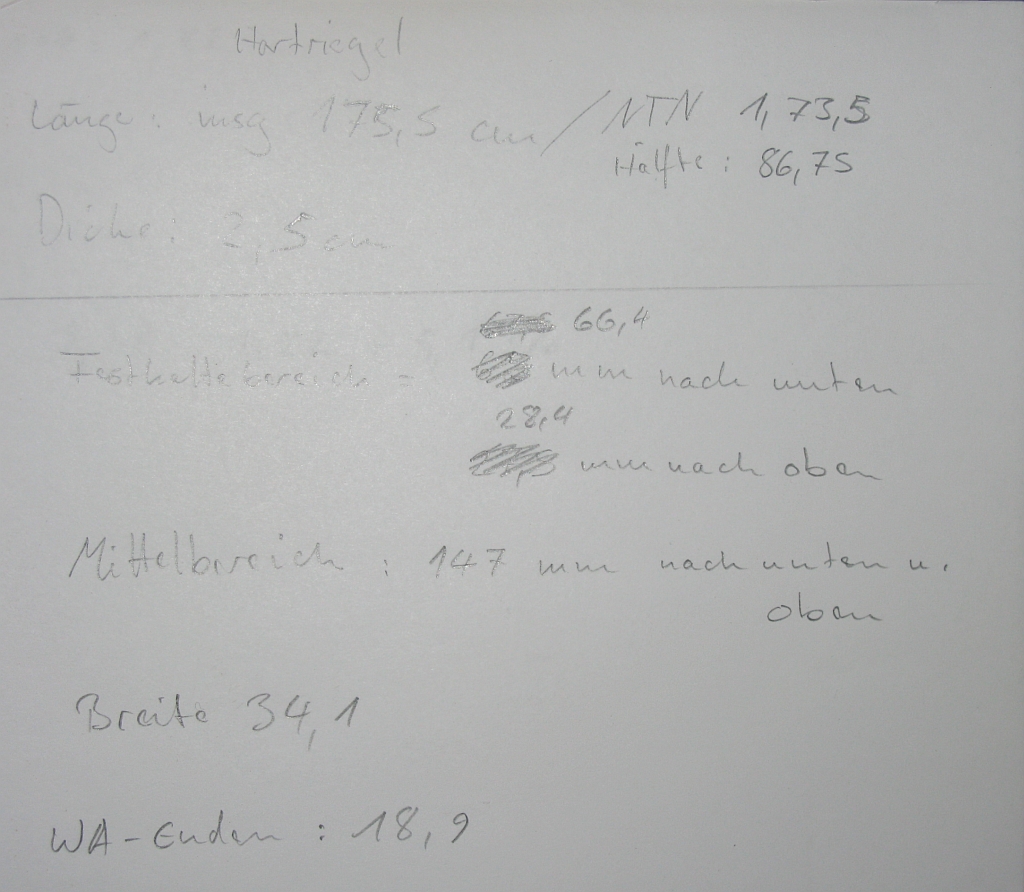 Hartriegel
Länge: insg 175,5 cm / NTN 1,73,5
Hälfte: 86,75
Dicke: 2,5 cm
66,4
Festhaltebereich = mm nach unten
28,4
mm nach oben
Mittelbereich: 147 mm nach unten u.
oben
Breite 34,1
WA-Enden: 18,9